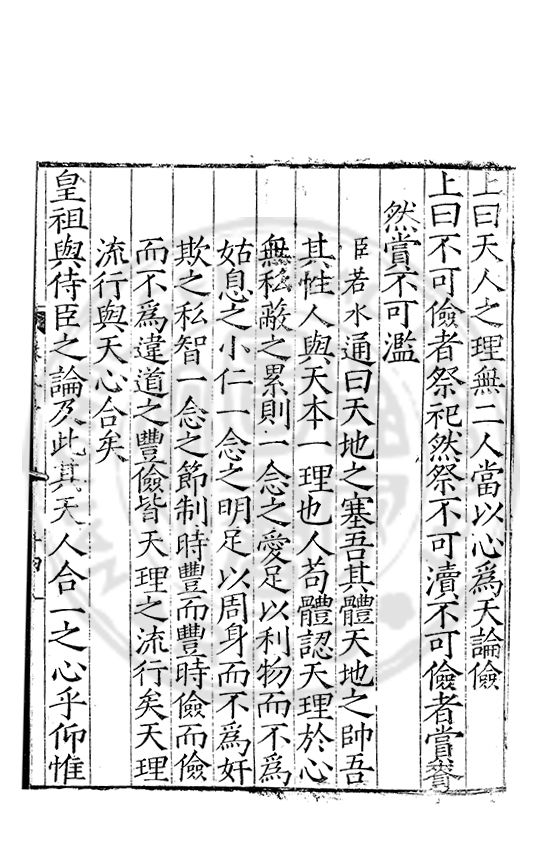 上曰天人之理無二人當以心爲天論儉
上曰不可儉者祭祀然祭不可瀆不可儉者賞賚
然賞不可濫
臣若水通曰天地之塞吾其體天地之帥吾
其性人與天本一理也人苟體認天理於心
無私蔽之累則一念之愛足以利物而不爲
姑息之小仁一念之明足以周身而不爲奸
欺之私智一念之節制時豐而豐時儉而儉
而不爲違道之豐儉皆天理之流行矣天理
流行與天心合矣
皇祖與侍臣之論及此其天人合一之心乎仰惟